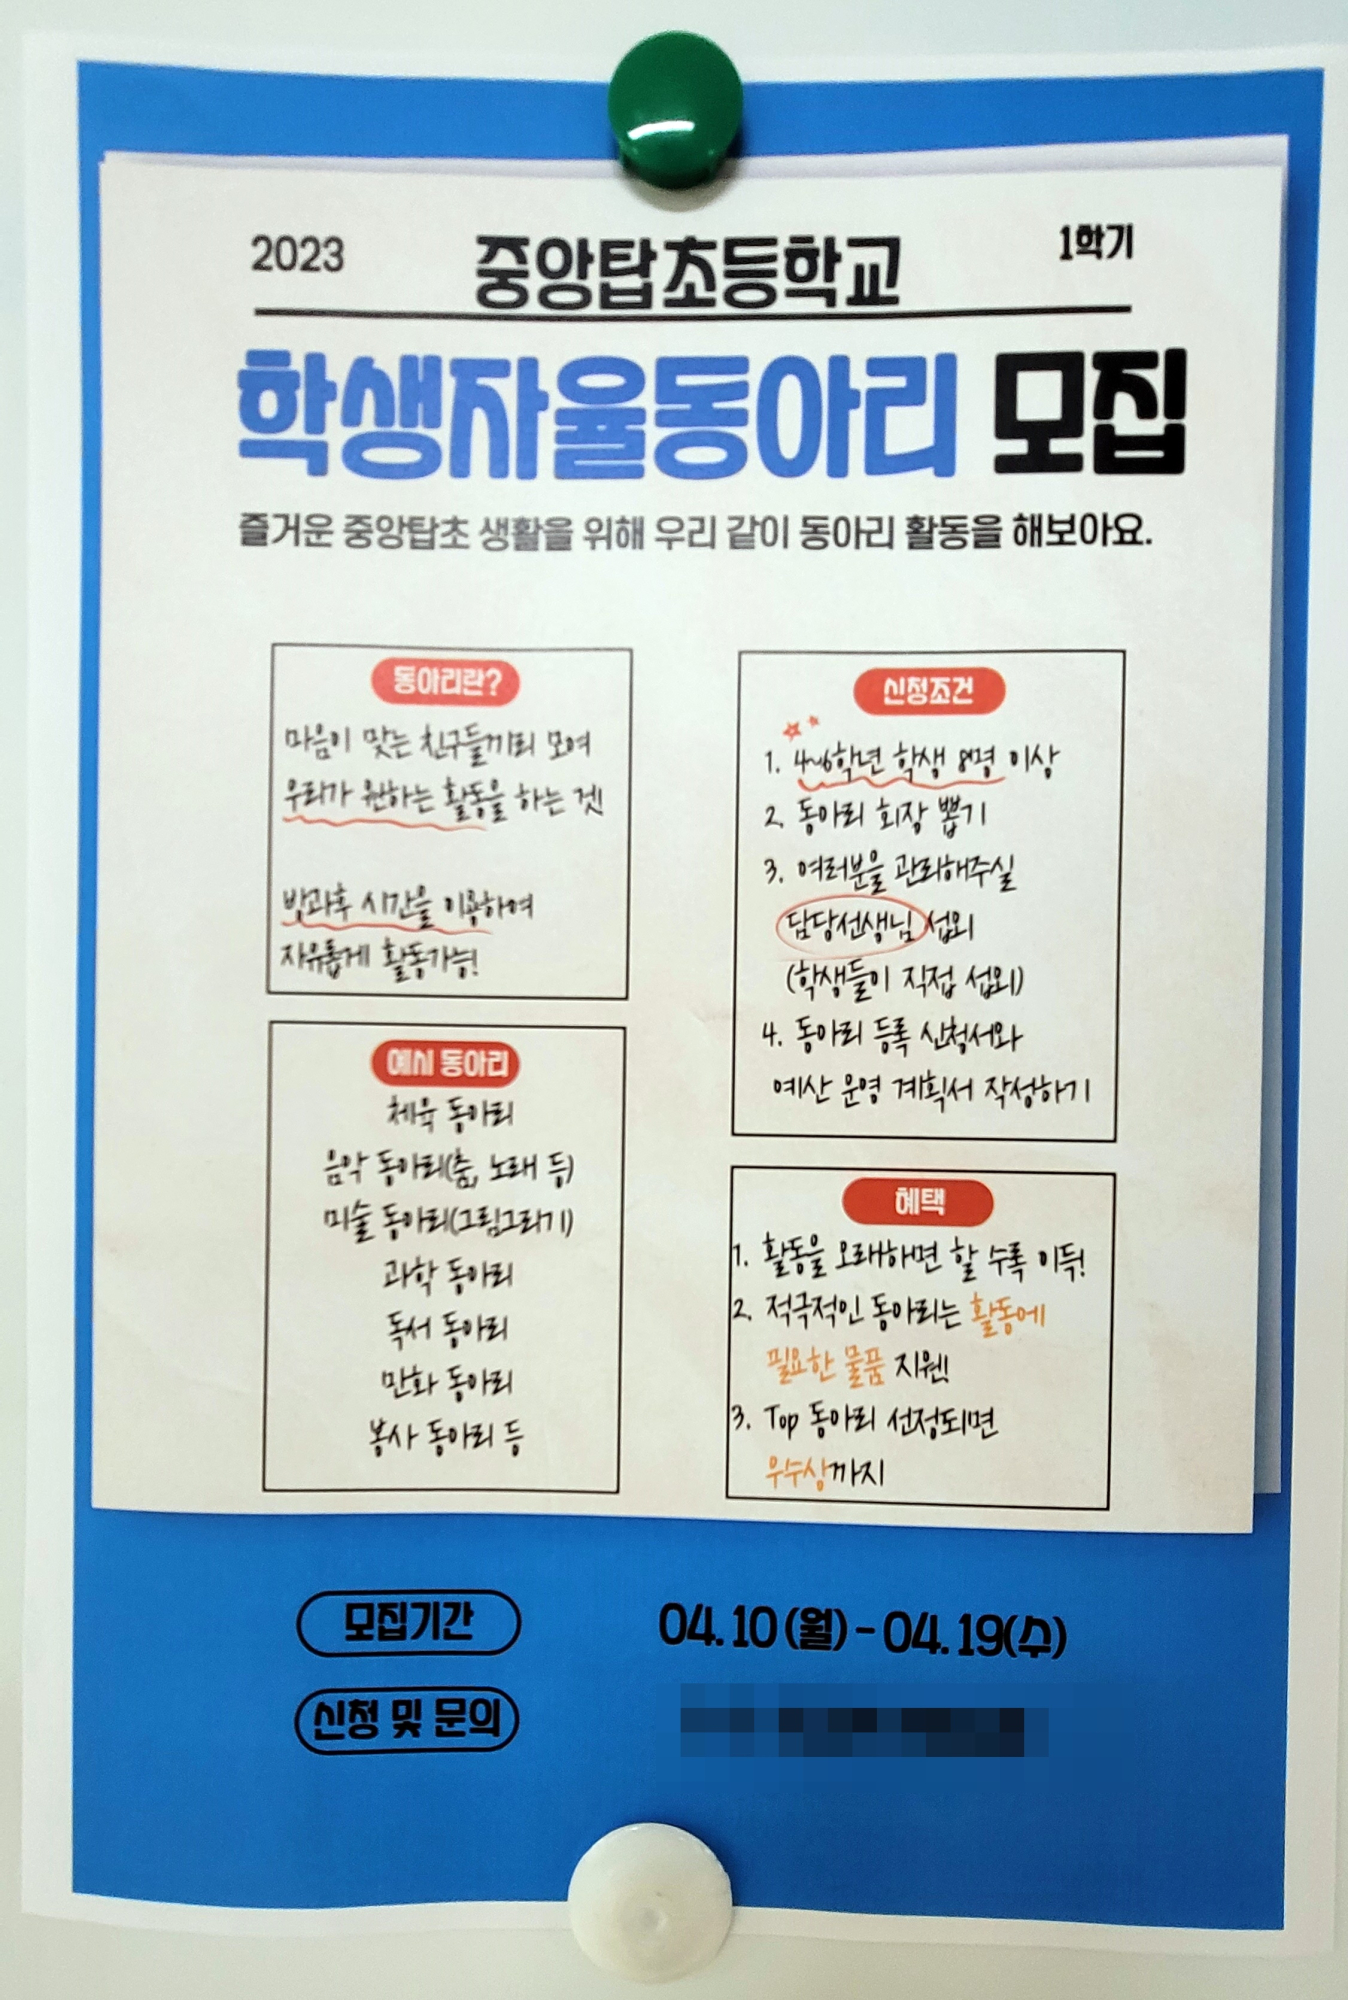 2023
중앙탑초등학교
1학기
학생자율동아리 모집
즐거운 중앙탑초 생활을 위해 우리 같이 동아리 활동을 해보아요.
동아리란?
마음이 맞는 친구들끼리 모여
우리가 원하는 활동을 하는 것!
방과후 시간을 이용하여
자유롭게 활동가능!
예시 동아리
체육 동아리
음악 동아리(춤, 노래 등)
미술 동아리(그림그리기)
과학 동아리
독서 동아리
만화 동아리
봉사 동아리 등
신청조건
1. 4~6학년 학생 8명 이상
2. 동아리 회장 뽑기
3. 여러분을 관리해주실
담당선생님 섭외
(학생들이 직접 섭외)
4. 동아리 등록 신청서와
예산 운영 계획서 작성하기
혜택
1. 활동을 오래하면 할 수록 이득!
2. 적극적인 동아리는 활동에
필요한 물품 지원!
3. Top 동아리 선정되면
우수상까지
모집기간
04. 10 (월) - 04. 19(수)
신청 및 문의